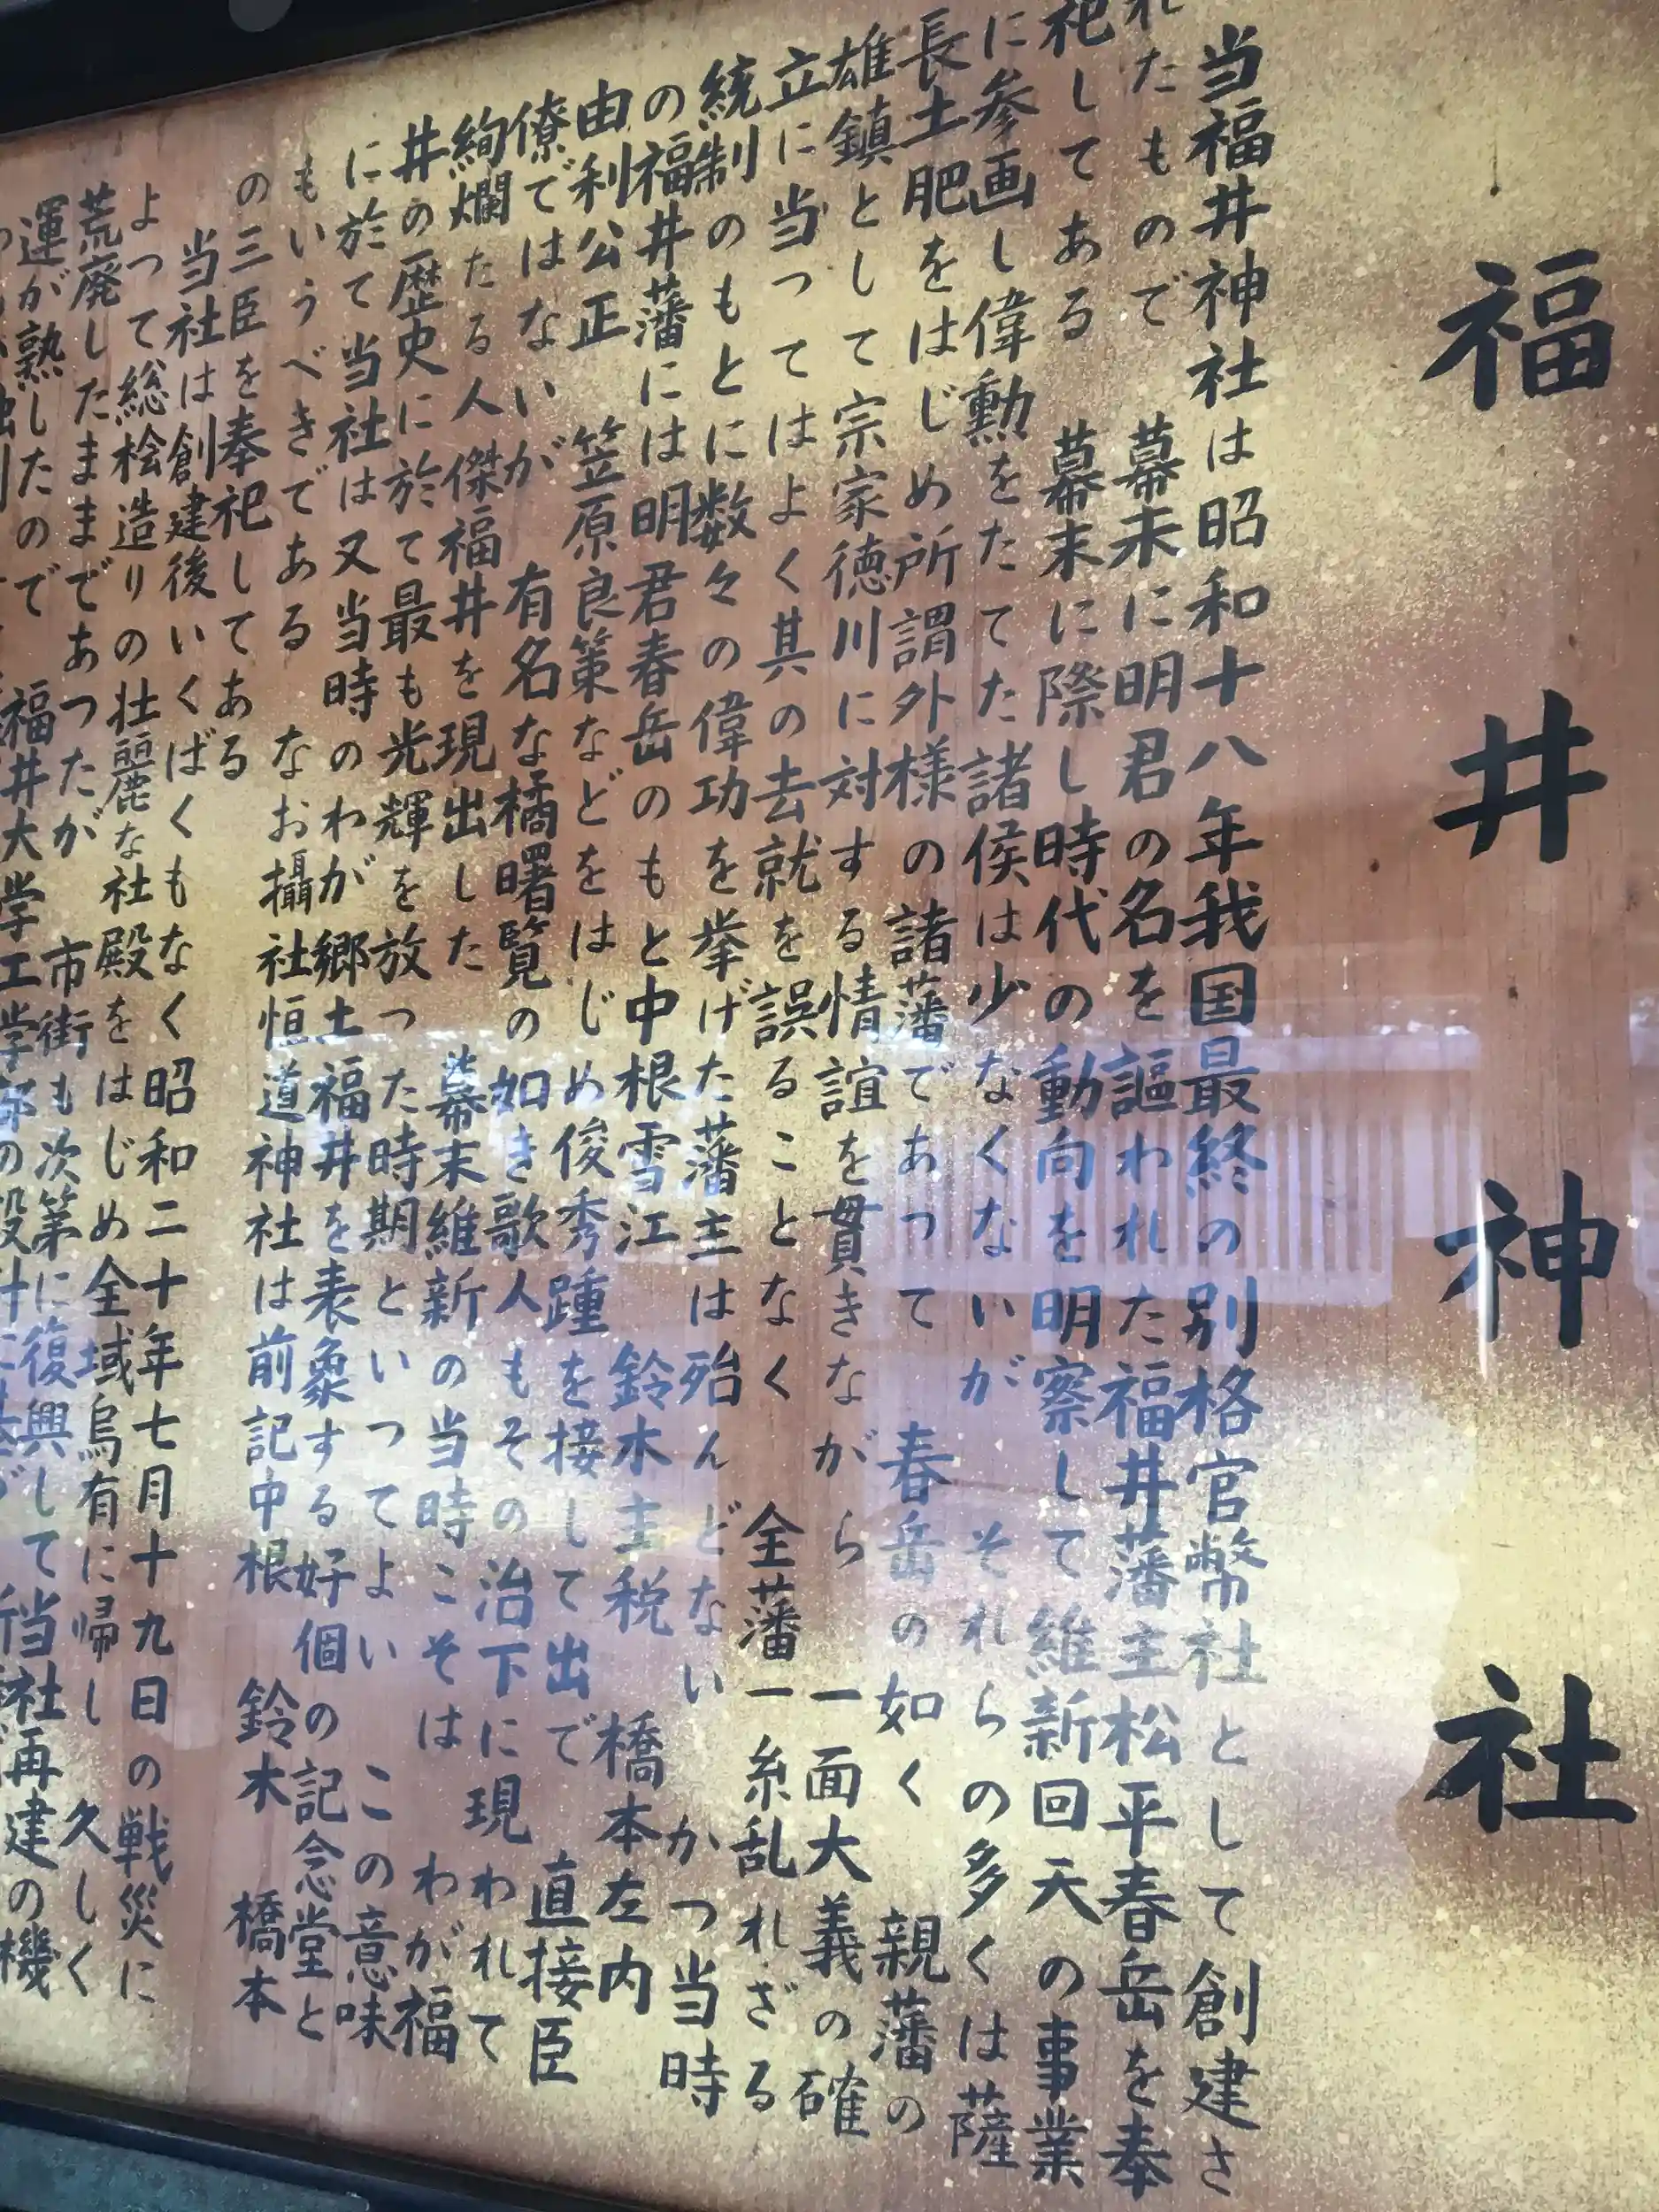 福井神社
当福井神社は昭和十八年我国最終の別格官幣社として創建さ
れたもので 幕末に明君の名を謳われた福井藩主松平春岳を奉
祀してある 幕末に際し時代の動向を明察して維新回天の事業
に参画し偉勳をたてた諸侯は少なくないが それらの多くは薩
長土肥をはじめ所謂外様の諸藩であって 春岳の如く 親藩の
雄鎮として宗家徳川に対する情誼を貫きながら 一面大義の確
立に当ってはよく其の去就を誤ることなく 全藩一糸乱れざる
統制のもとに数々の偉功を挙げた藩主は殆んどない かつ当時
の福井藩には明君春岳のもと中根雪江 鈴木主税 橋本左内
由利公正 笠原良策などをはじめ俊秀踵を接して出で 直接臣
僚ではないが 有名な橘曙覧の如き歌人もその治下に現われて
絢爛たる人傑福井を現出した 幕末維新の当時こそは わが福
井の歴史に於て最も光輝を放った時期といつてよい この意味
に於て当社は又当時のわが郷土福井を表象する好個の記念堂と
もいうべきである なお攝社恒道神社は前記中根 鈴木 橋本
の三臣を奉祀してある
当社は創建後いくばくもなく昭和二十年七月十九日の戦災に
よって総桧造りの壮麗な社殿をはじめ全域烏有に帰し 久しく
荒廃したままであつたが 市街も次第に復興して当社再建の機
運が熟したので 福井大学工学部の設計に基づ